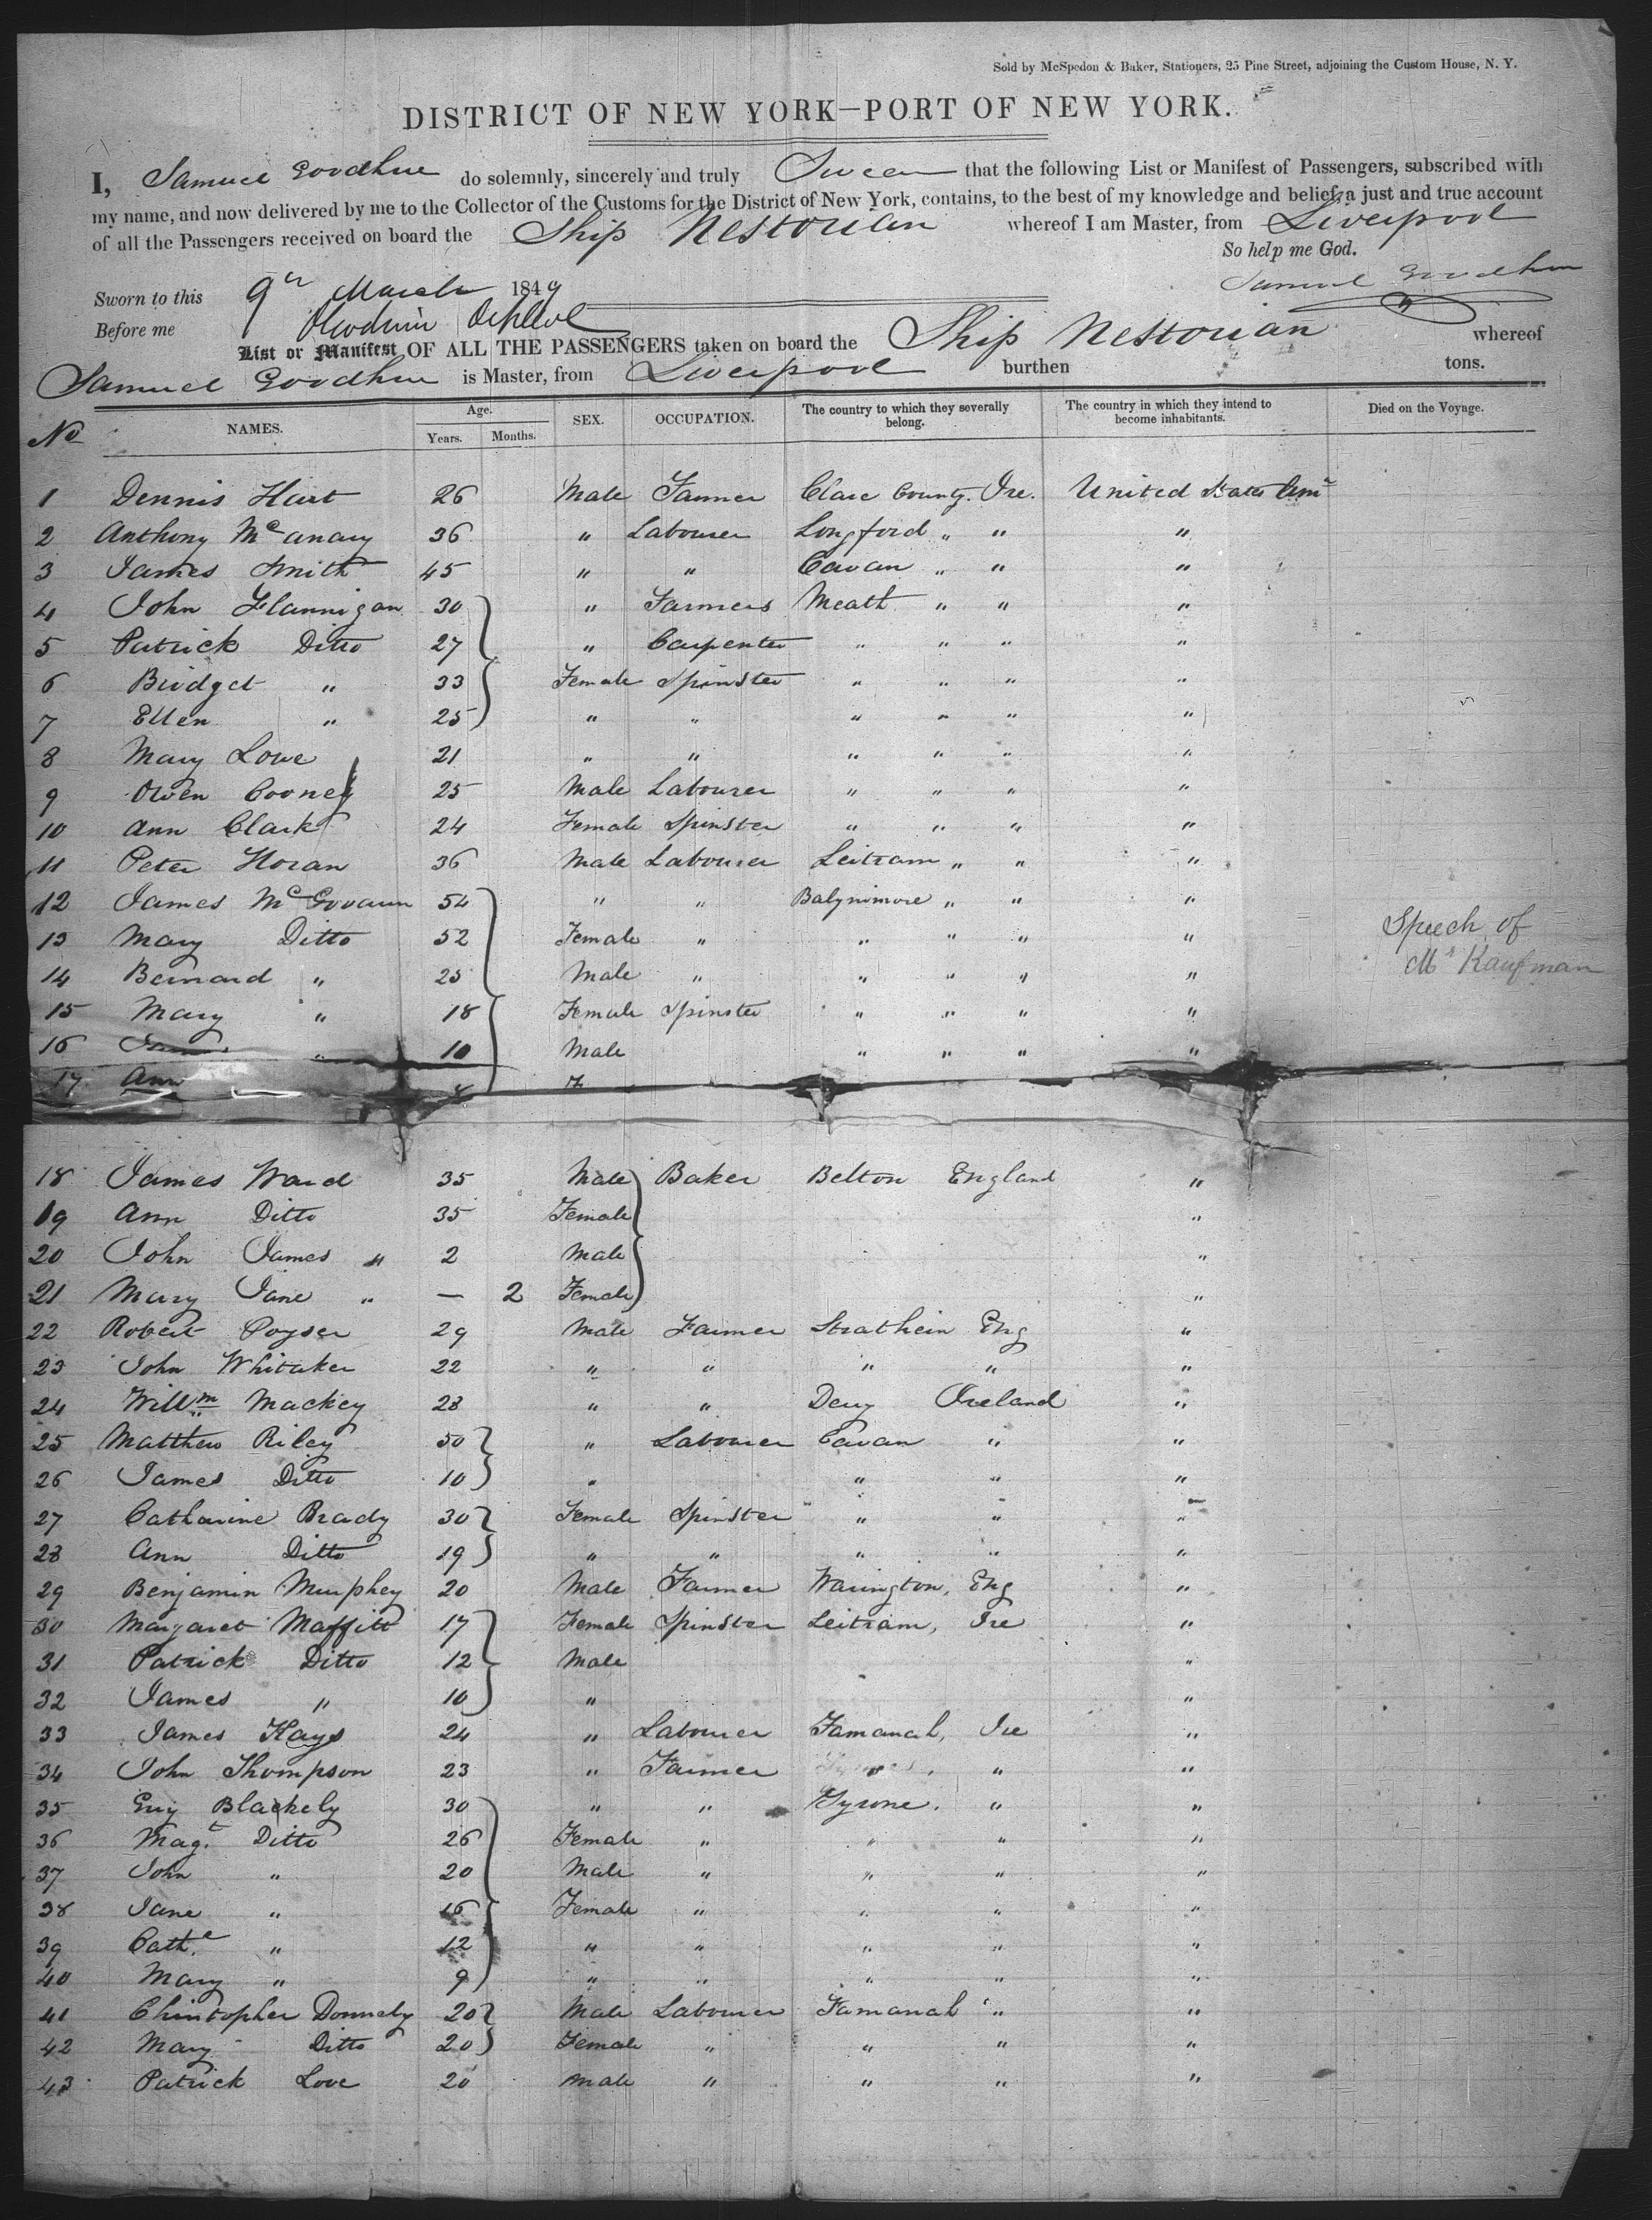 Sold by McSpedon & Baker, Stationers, 25 Pine Street, adjoining the Custom House, N. Y.
DISTRICT OF NEW YORK—PORT OF NEW YORK.
I, Samuel Goodhue do solemnly, sincerely and truly Swear that the following List or Manifest of Passengers, subscribed with
my name, and now delivered by me to the Collector of the Customs for the District of New York, contains, to the best of my knowledge and belief, a just and true account
of all the Passengers received on board the Ship Nestorian whereof I am Master, from Liverpool
So help me God.
Samuel Goodhue
Sworn to this 9th March 1849
Before me
List or Manifest OF ALL THE PASSENGERS taken on board the Ship Nestorian whereof
Samuel Goodhue is Master, from Liverpool burthen tons.
No NAMES. Age. Years. Months. SEX. OCCUPATION. The country to which they severally belong. The country in which they intend to become inhabitants. Died on the Voyage.
1 Dennis Hart 26 Male Farmer Clare County. Ire. United States Ama
2 Anthony McAnary 36 " Labourer Longford " " "
3 James Smith 45 " " Cavan " " "
4 John Flannigan 30 " Farmers Meath " " "
5 Patrick Ditto 27 " Carpenter " " " "
6 Bridget " 33 Female Spinster " " " "
7 Ellen " 25 " " " " " "
8 Mary Lowe 21 " " " " " "
9 Owen Cooney 25 Male Labourer " " " "
10 Ann Clark 24 Female Spinster " " " "
11 Peter Horan 36 Male Labourer Leitram " " "
12 James McGovarn 54 " " Balynimore " " "
13 Mary Ditto 52 Female " " " " "
14 Bernard " 25 Male " " " " "
15 Mary " 18 Female Spinster " " " "
16 James " 10 Male " " " "
17 Ann
Speech of
Mr Kaufman
18 James Ward 35 Male Baker Belton England "
19 Ann Ditto 35 Female "
20 John James " 2 Male "
21 Mary Jane " — 2 Female "
22 Robert Poyser 29 Male Farmer Strathern Eng "
23 John Whitaker 22 " " " " "
24 Willm Mackey 28 " " Derry Ireland "
25 Matthew Riley 50 " Labourer Cavan " "
26 James Ditto 10 " " " "
27 Catharine Brady 30 Female Spinster " " "
28 Ann Ditto 19 " " " " "
29 Benjamin Murphey 20 Male Farmer Warington, Eng "
30 Margaret Maffitt 17 Female Spinster Leitram, Ire "
31 Patrick Ditto 12 Male "
32 James " 10 " "
33 James Hays 24 " Labourer Famanah, Ire "
34 John Thompson 23 " Farmer " " "
35 Guy Blackely 30 " " Tyrone. " "
36 Magt Ditto 26 Female " " " "
37 John " 20 Male " " " "
38 Jane " 16 Female " " " "
39 Cathe " 12 " " " " "
40 Mary " 9 " " " " "
41 Christopher Donnely 20 Male Labourer Famanah " "
42 Mary Ditto 20 Female " " " "
43 Patrick Love 20 Male " " " "